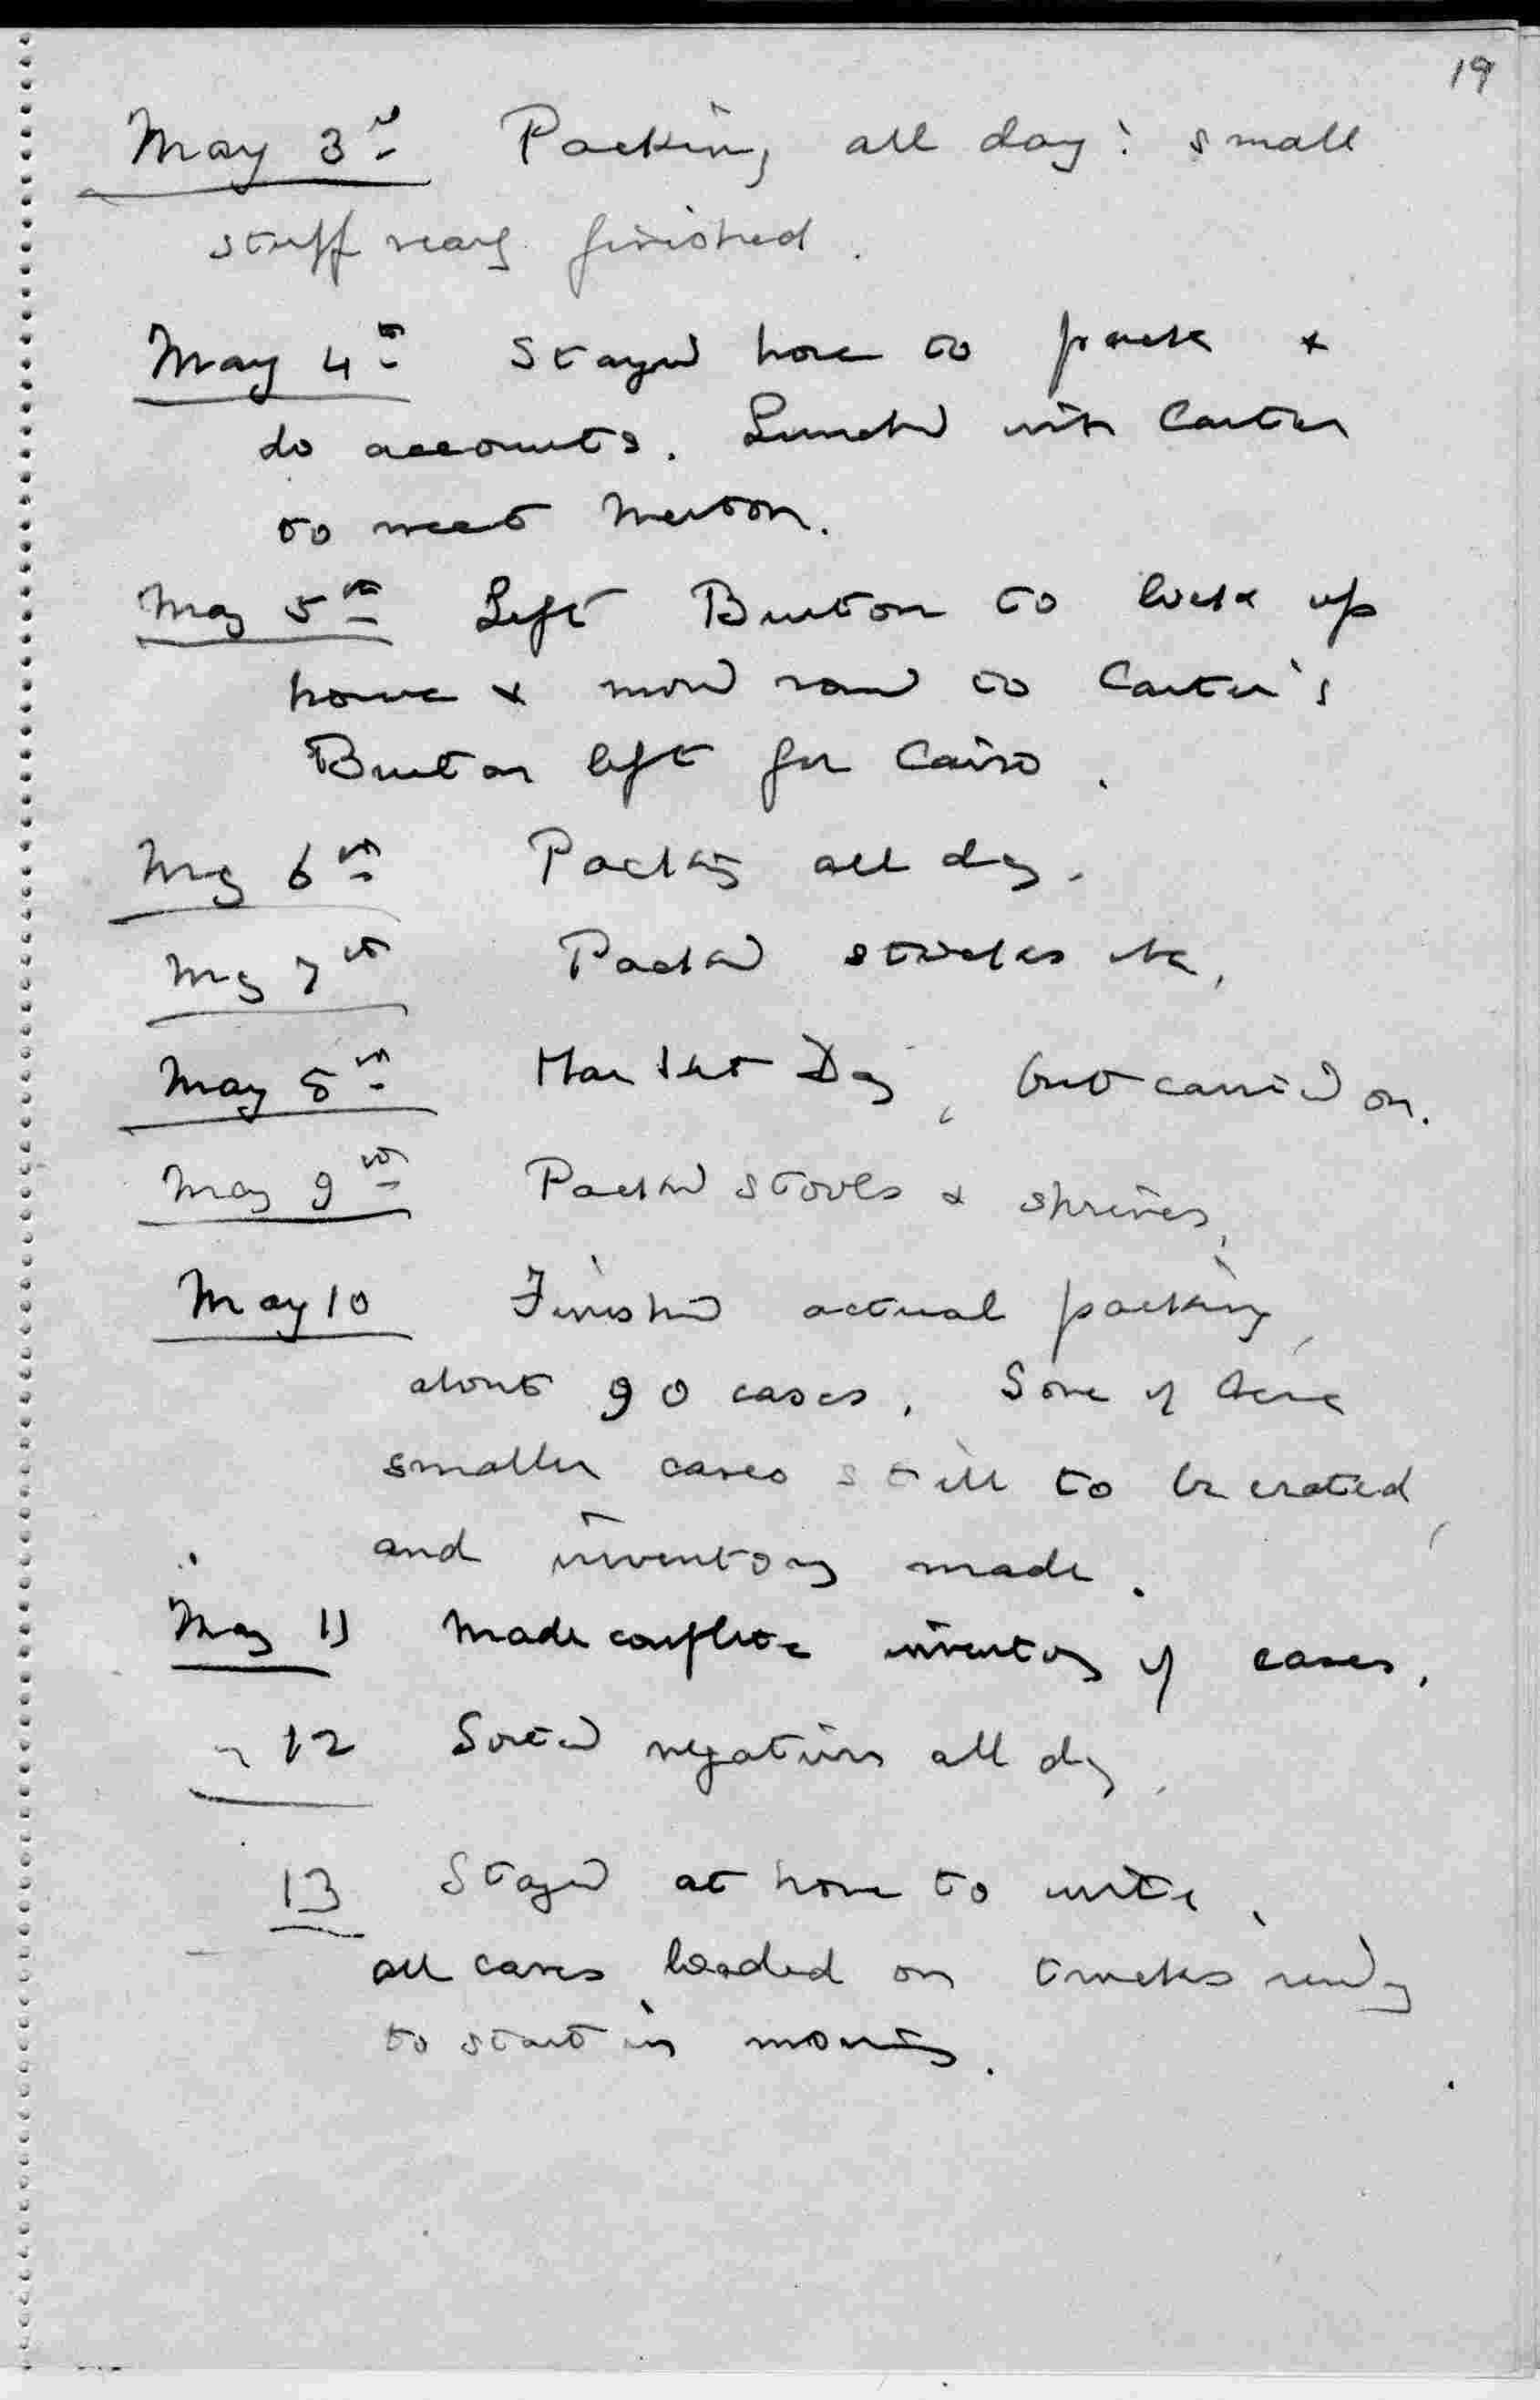 19
May 3rd Packing all day: small
stuff nearly finished.
May 4th Stayed home to pack &
do accounts. Lunched with Carter
to meet Merton.
May 5th Left Burton to lock up
house & moved round to Carter's
Burton left for Cairo.
May 6th Packing all day.
May 7th Packed sticks etc.
May 8th Market Day, but carried on.
May 9th Packed stools & shrines,
May 10 Finished actual packing,
about 90 cases. Some of these
smaller cases still to be crated,
and inventory made.
May 11 Made complete inventory of cases.
" 12 Sorted negatives all day.
13 Stayed at home to write.
all cases loaded on trucks ready
to start in morning.